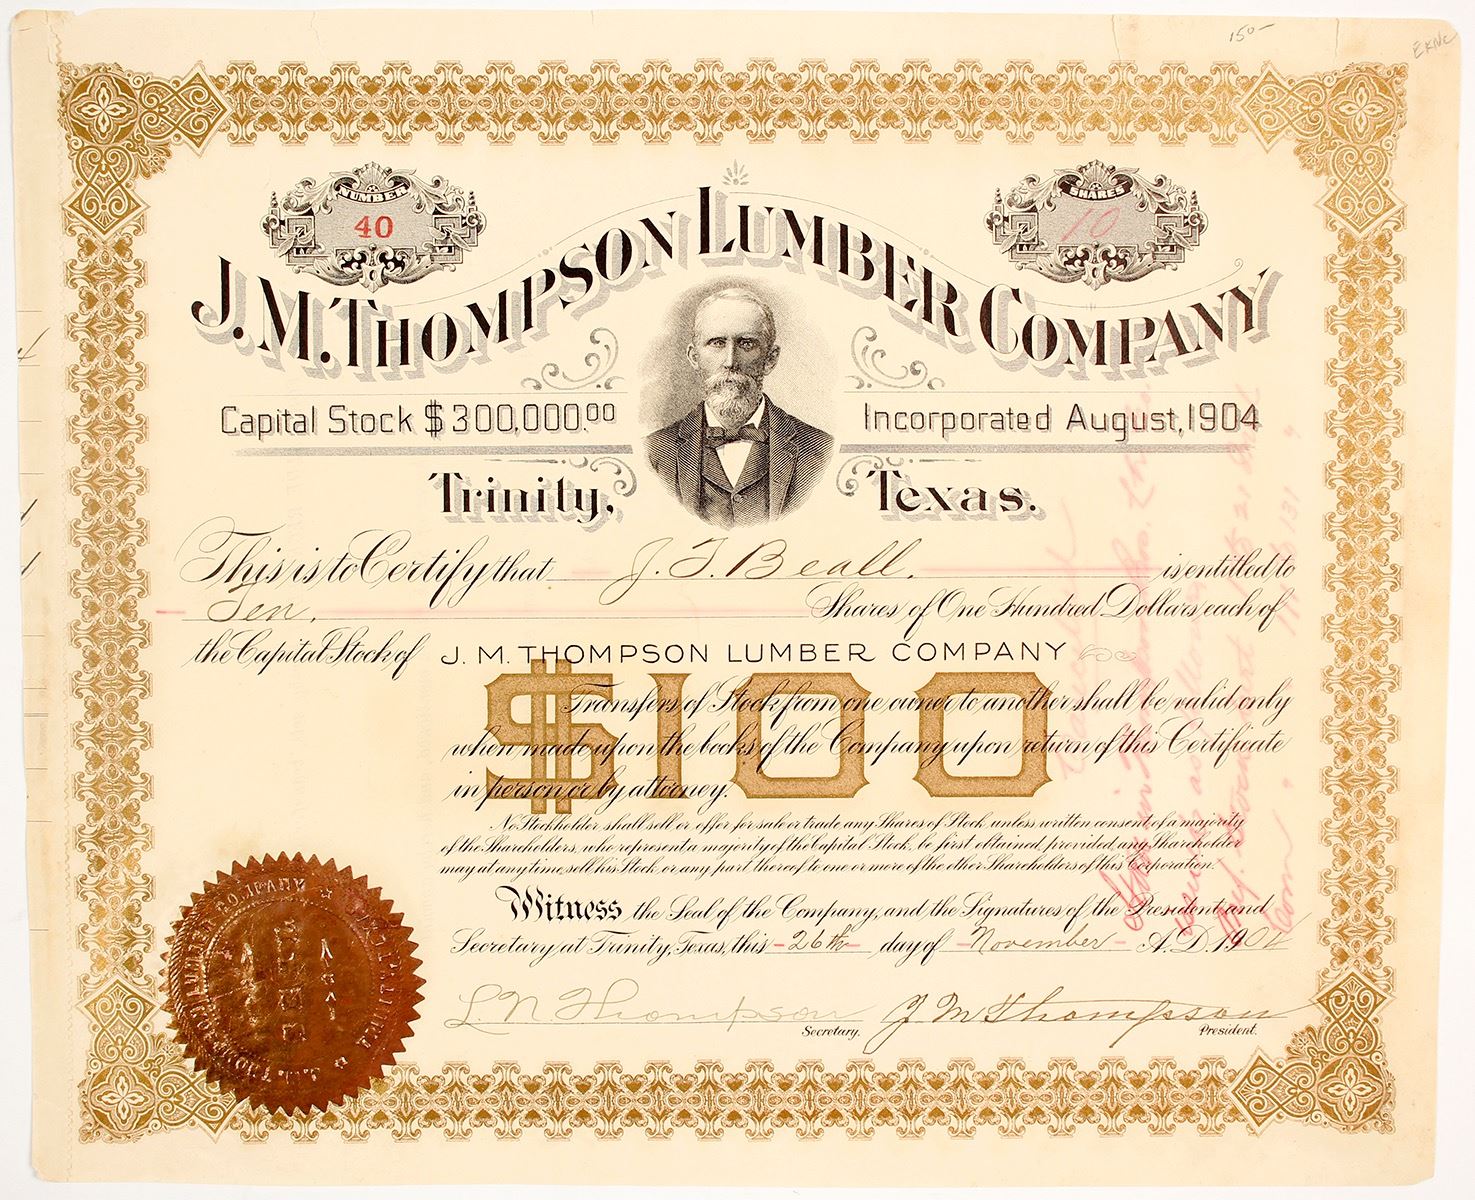 150-
EKNC
NUMBER
40
SHARES
10
J. M. THOMPSON LUMBER COMPANY
Capital Stock $300,000.00
Incorporated August, 1904
Trinity, Texas.
This is to Certify that J. F. Beall. is entitled to
Ten, Shares of One Hundred Dollars each of
the Capital Stock of J. M. THOMPSON LUMBER COMPANY
$100
Transfers of Stock from one owner to another shall be valid only
when made upon the books of the Company upon return of this Certificate
in person or by attorney.
No Stockholder shall sell or offer for sale or trade any Shares of Stock, unless written consent of a majority
of the Shareholders, who represent a majority of the Capital Stock, be first obtained, provided, any Shareholder
may at any time, sell his Stock, or any part thereof to one or more of the other Shareholders of this Corporation.
Witness the Seal of the Company, and the Signatures of the President and
Secretary, at Trinity, Texas, this -26th- day of -November- A.D. 1904
L N Thompson
Secretary.
J M Thompson
President.
LUMBER COMPANY